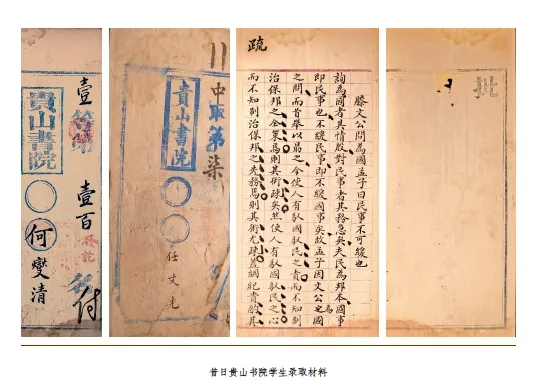 貴山書院
何燮清
壹百
付
中取第柒
貴山書院
疏
滕文公問為國孟子曰民事不可緩也
詢為國者其情殷對民事者其務急矣夫民為邦本國事
即民事也不緩民事即不緩國事矣故孟子因文公國
之問而首舉以勗之今使人有馭國馭民之責而不知制
治保邦之全策焉則其術疎矣然使人有馭國馭民之心
而不知制治保邦之先務焉則其術尤疎蓋綱紀貴酌其
昔日贵山书院学生录取材料